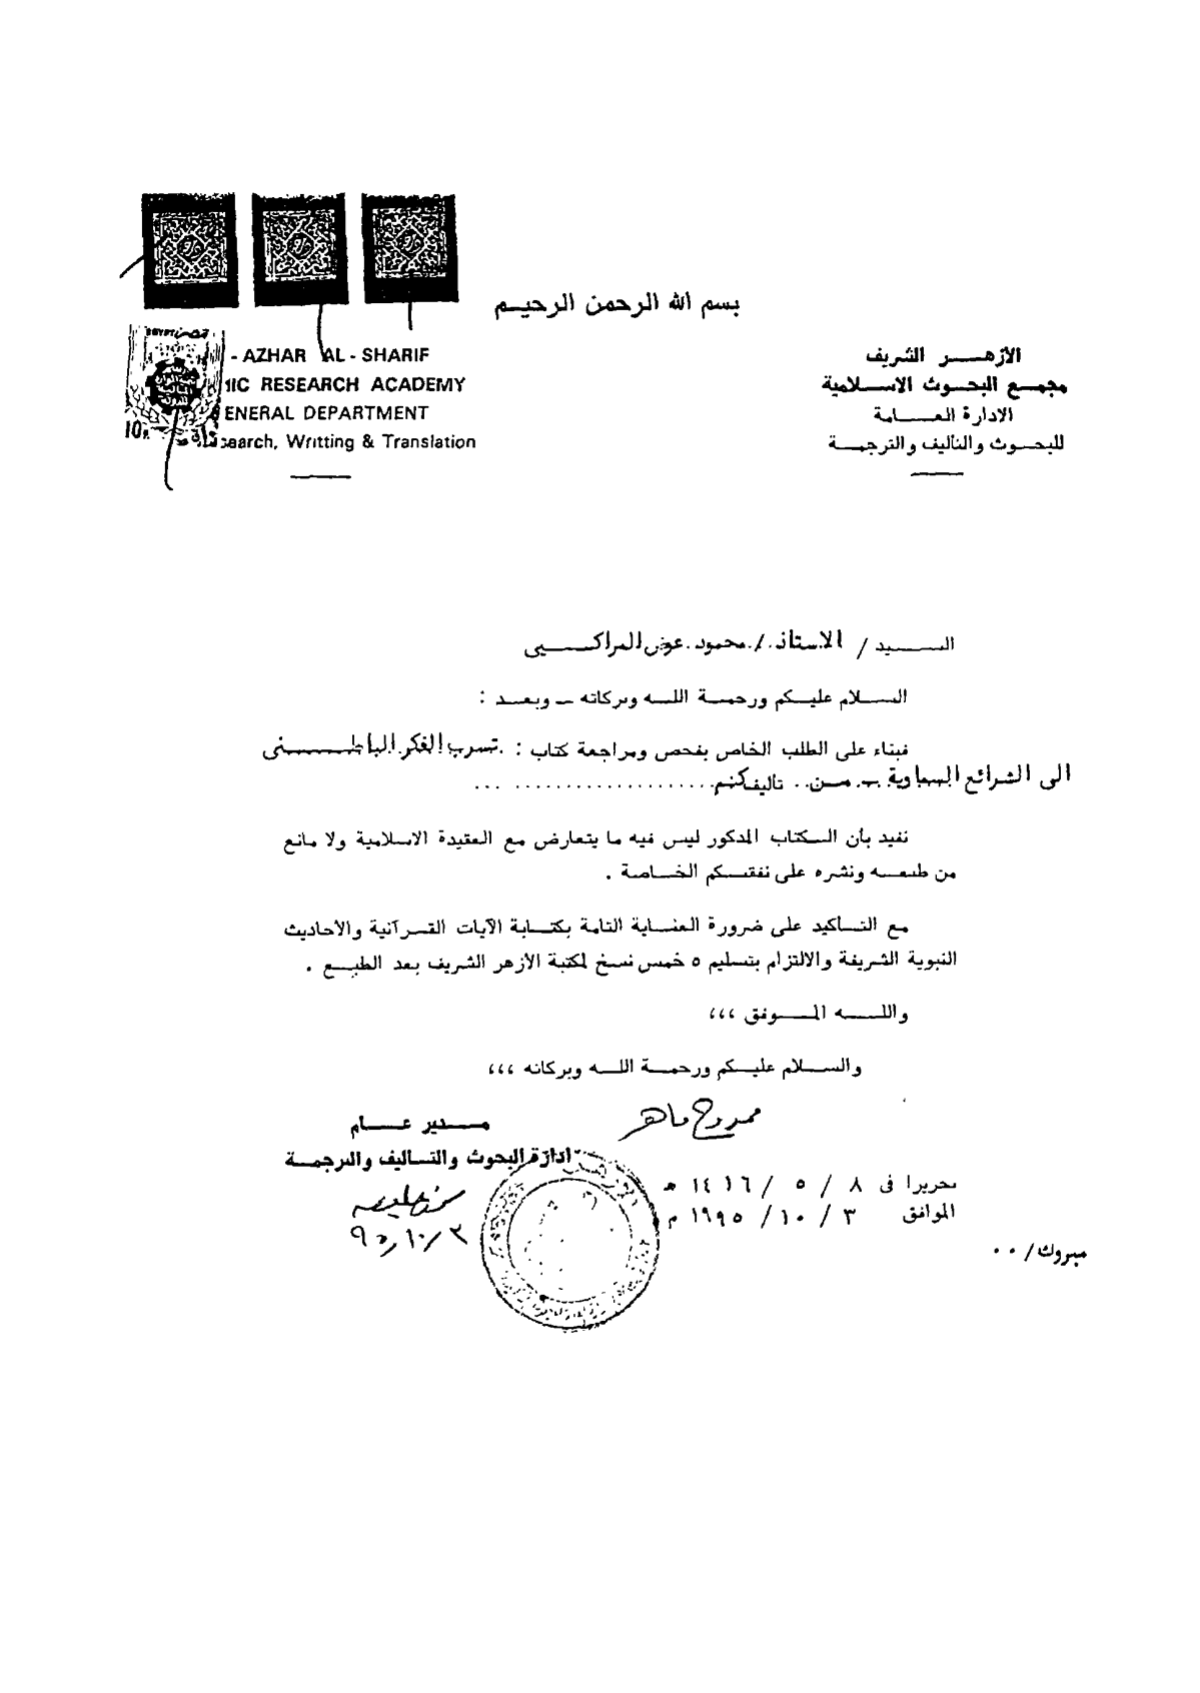 بسم الله الرحمن الرحيم
- AZHAR AL - SHARIF
MIC RESEARCH ACADEMY
ENERAL DEPARTMENT
search, Writting & Translation
EGYPT مصر
الأزهر الشريف
مجمع البحوث الاسلامية
الادارة العامة
للبحوث والتأليف والترجمة
السيد / الاستاذ / محمود عوض المراكبى
السلام عليكم ورحمة الله وبركاته ــ وبعد :
فبناء على الطلب الخاص بفحص ومراجعة كتاب : تسرب الفكر الباطنى
الى الشرائع السماوية ــ من .. تأليفكم .......................
نفيد بأن الكتاب المذكور ليس فيه ما يتعارض مع العقيدة الاسلامية ولا مانع
من طبعه ونشره على نفقتكم الخاصة .
مع التأكيد على ضرورة العناية التامة بكتابة الآيات القرآنية والأحاديث
النبوية الشريفة والالتزام بتسليم ٥ خمس نسخ لمكتبة الأزهر الشريف بعد الطبع .
والله الموفق ،،،
والسلام عليكم ورحمة الله وبركاته ،،،
ممدوح ماهر
مدير عام
ادارة البحوث والتأليف والترجمة
٩٥/١٠/٣
تحريرا فى ٨ / ٥ / ١٤١٦ هـ
الموافق ٣ / ١٠ / ١٩٩٥ م
مبروك / ٠٠